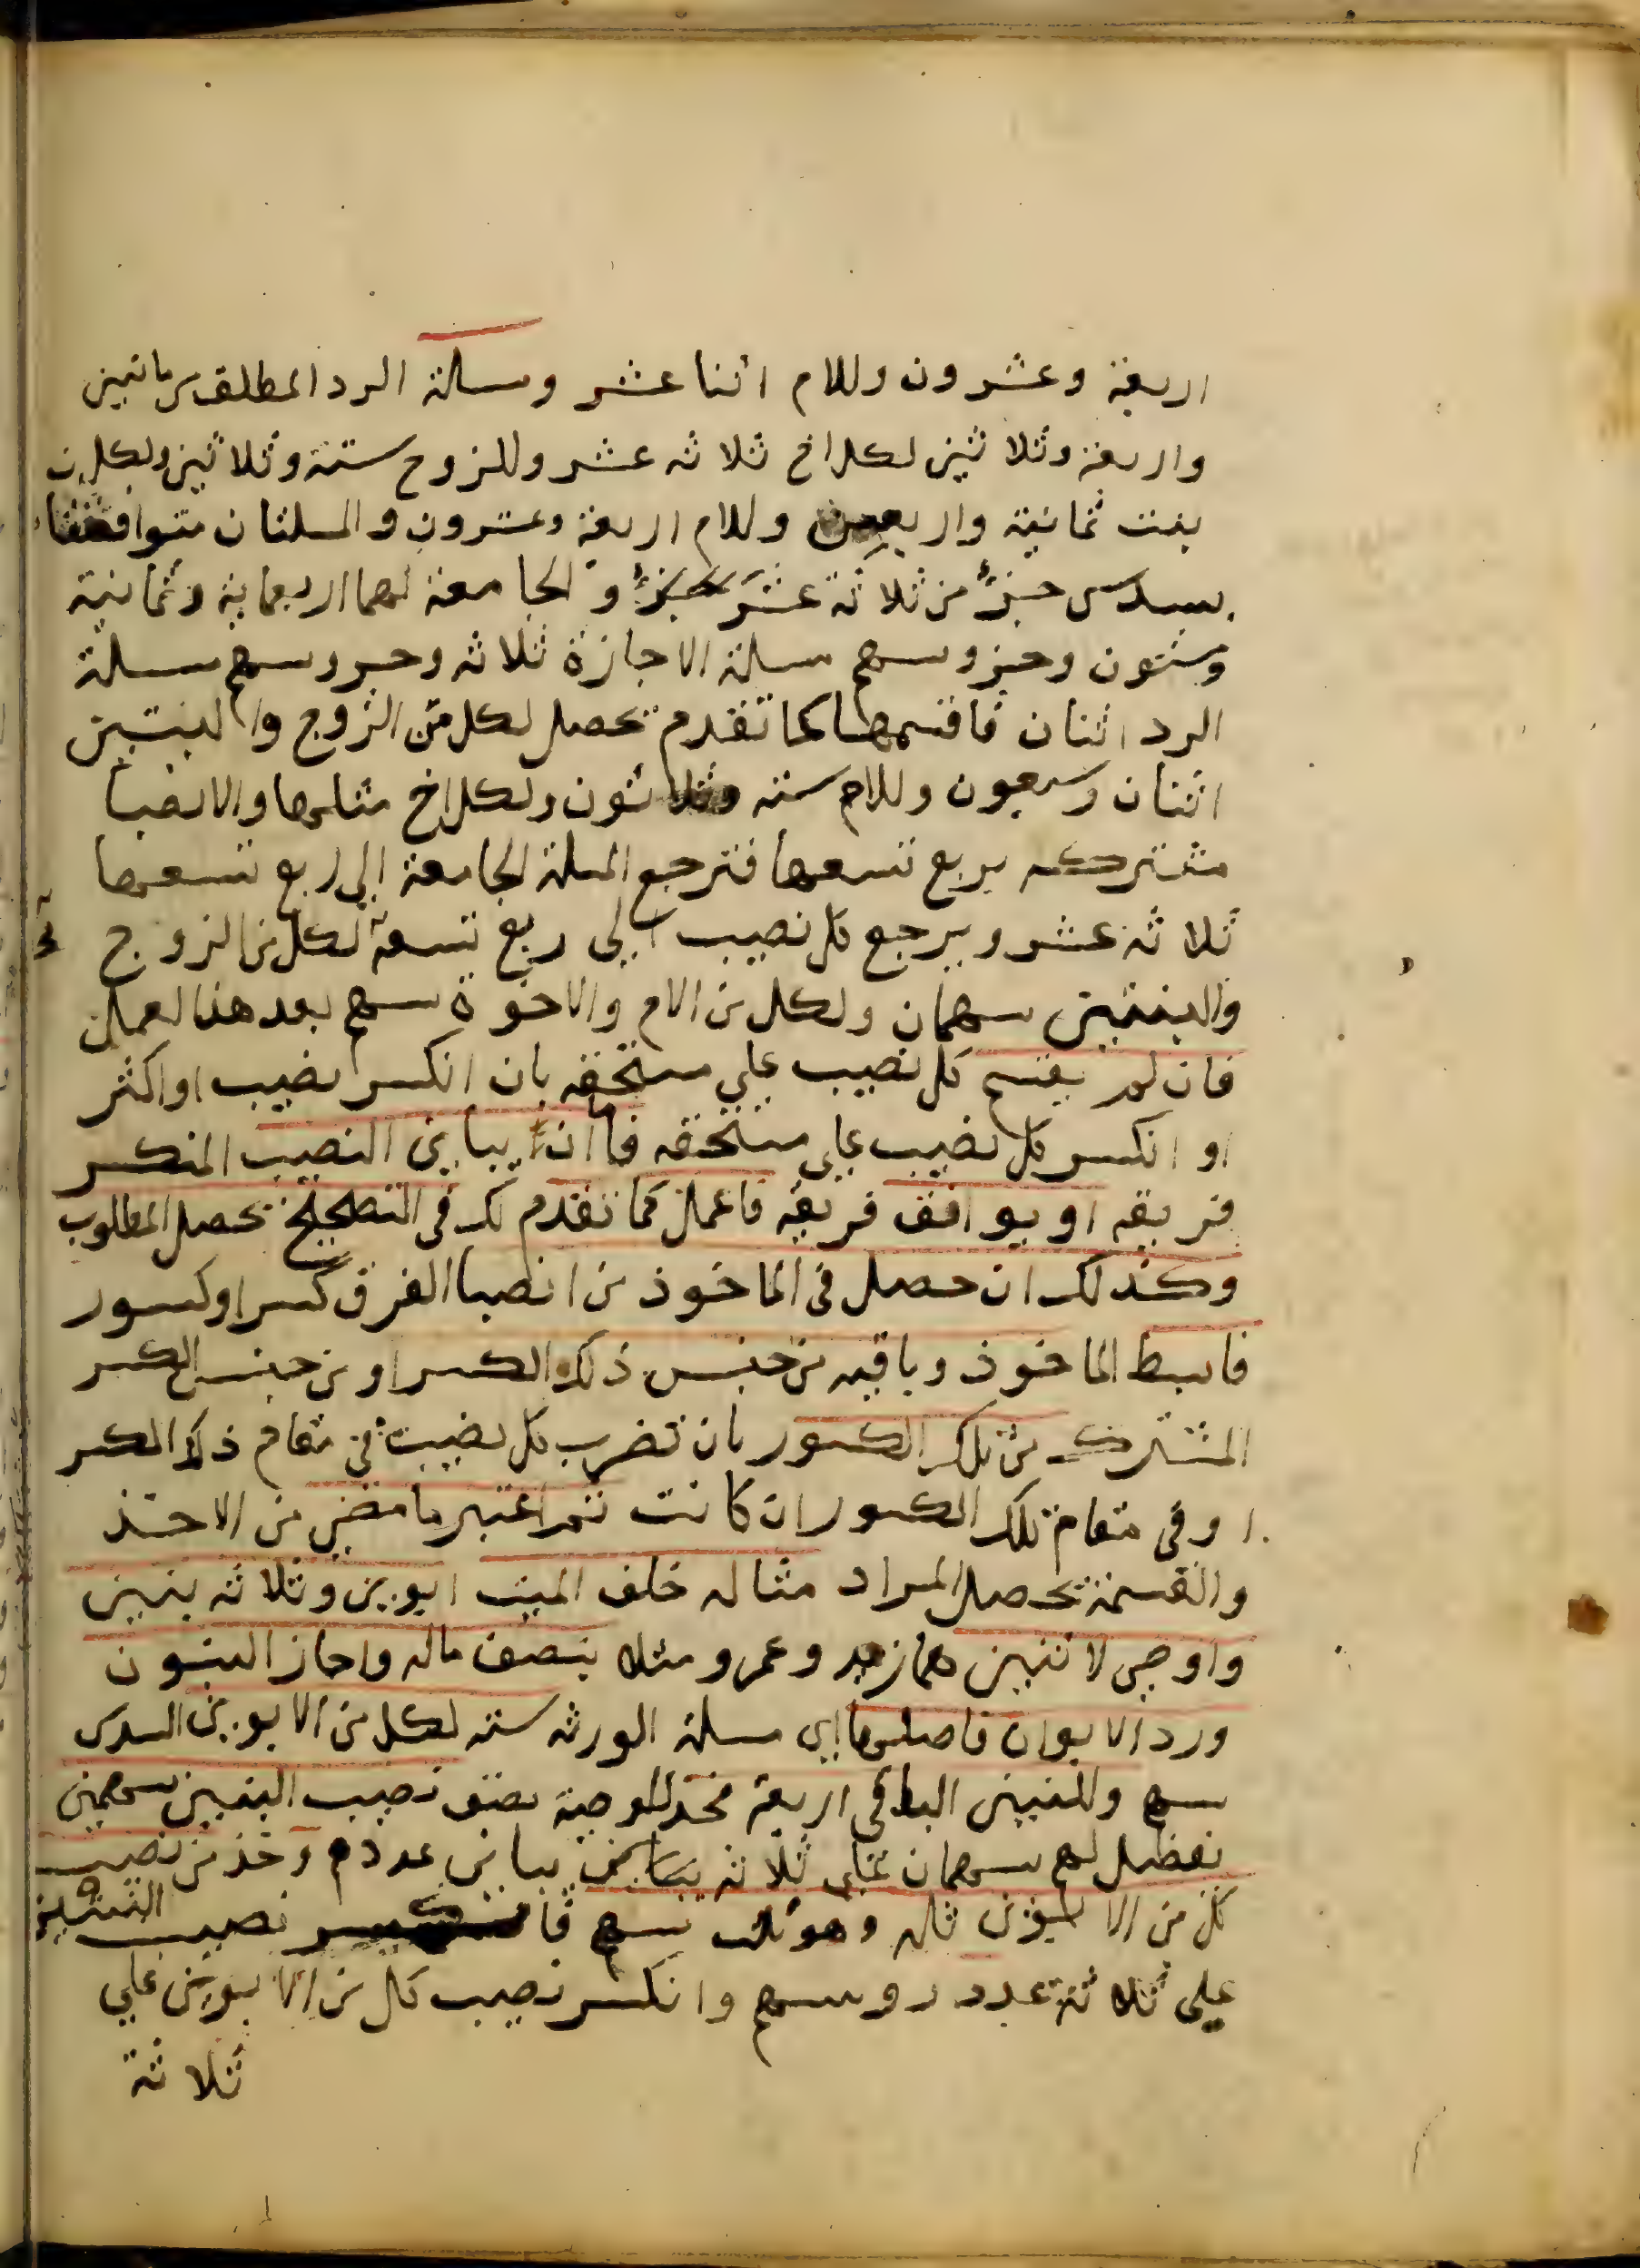 اربعة وعشرون وللام اثنا عشر ومسلة الرد المطلق من مائتين
واربعة وثلاثين لكل اخ ثلاثه عشر وللزوج ستة وثلاثين ولكل من
بنت ثمانية واربعين وللام اربعة وعشرون والمسلتان متوافقتا
بسدس جزؤ من ثلاثة عشر جزؤ والجامعة لهما اربعماية وثمانية
وستون وجزو سهم مسلة الاجازة ثلاثه وجزو سهم مسلة
الرد اثنان فاقسمها كما تقدم تحصل لكل من الزوج والبنتين
اثنان وسبعون وللام سته وثلاثون ولكل اخ مثلها والانصبا
مشتركه بربع تسعها فترجع المسلة الجامعة الي ربع تسعها
ثلاثة عشر ويرجع كل نصيب الي ربع تسعة لكل من الزوج
والبنتين سهمان ولكل من الام والاخوة سهم بعد هذا العمل
فان لم يقسم كل نصيب علي مستحقه بان انكسر نصيب او اكثر
او انكسر كل نصيب علي مستحقه فاان يباين النصيب المنكسر
فريقه او يوافق فريقه فاعمل كما تقدم لك في التصحيح تحصل المطلوب
وكذلك ان حصل في الماخوذ من انصبا الفرق كسر او كسور
فابسط الماخوذ وباقيه من جنس ذلك الكسر او من جنس الكسر
المشترك من تلك الكسور بان تضرب كل نصيب في مقام ذلك الكسر
او في مقام تلك الكسور ان كانت ثم اعتبر ما مضي من الاخذ
والقسمة تحصل المراد مثاله خلف الميت ابوين وثلاثه بنين
واوصي لاثنين هما زيد وعمرو مثلا بنصف ماله واجاز البنون
ورد الابوان فاصلها اي مسلة الورثه سته لكل من الابوين السدس
سهم وللبنين الباقي اربعة فخذ للوصية نصف نصيب البنين سهمين
تفضل لهم سهمان علي ثلاثه يباين عددهم وخذ من نصيب
كل من الابوين ثلثه وهو ثلث سهم فانكسر نصيب البنين
علي ثلاثة عدد روسهم وانكسر نصيب كل من الابوين علي
ثلاثة